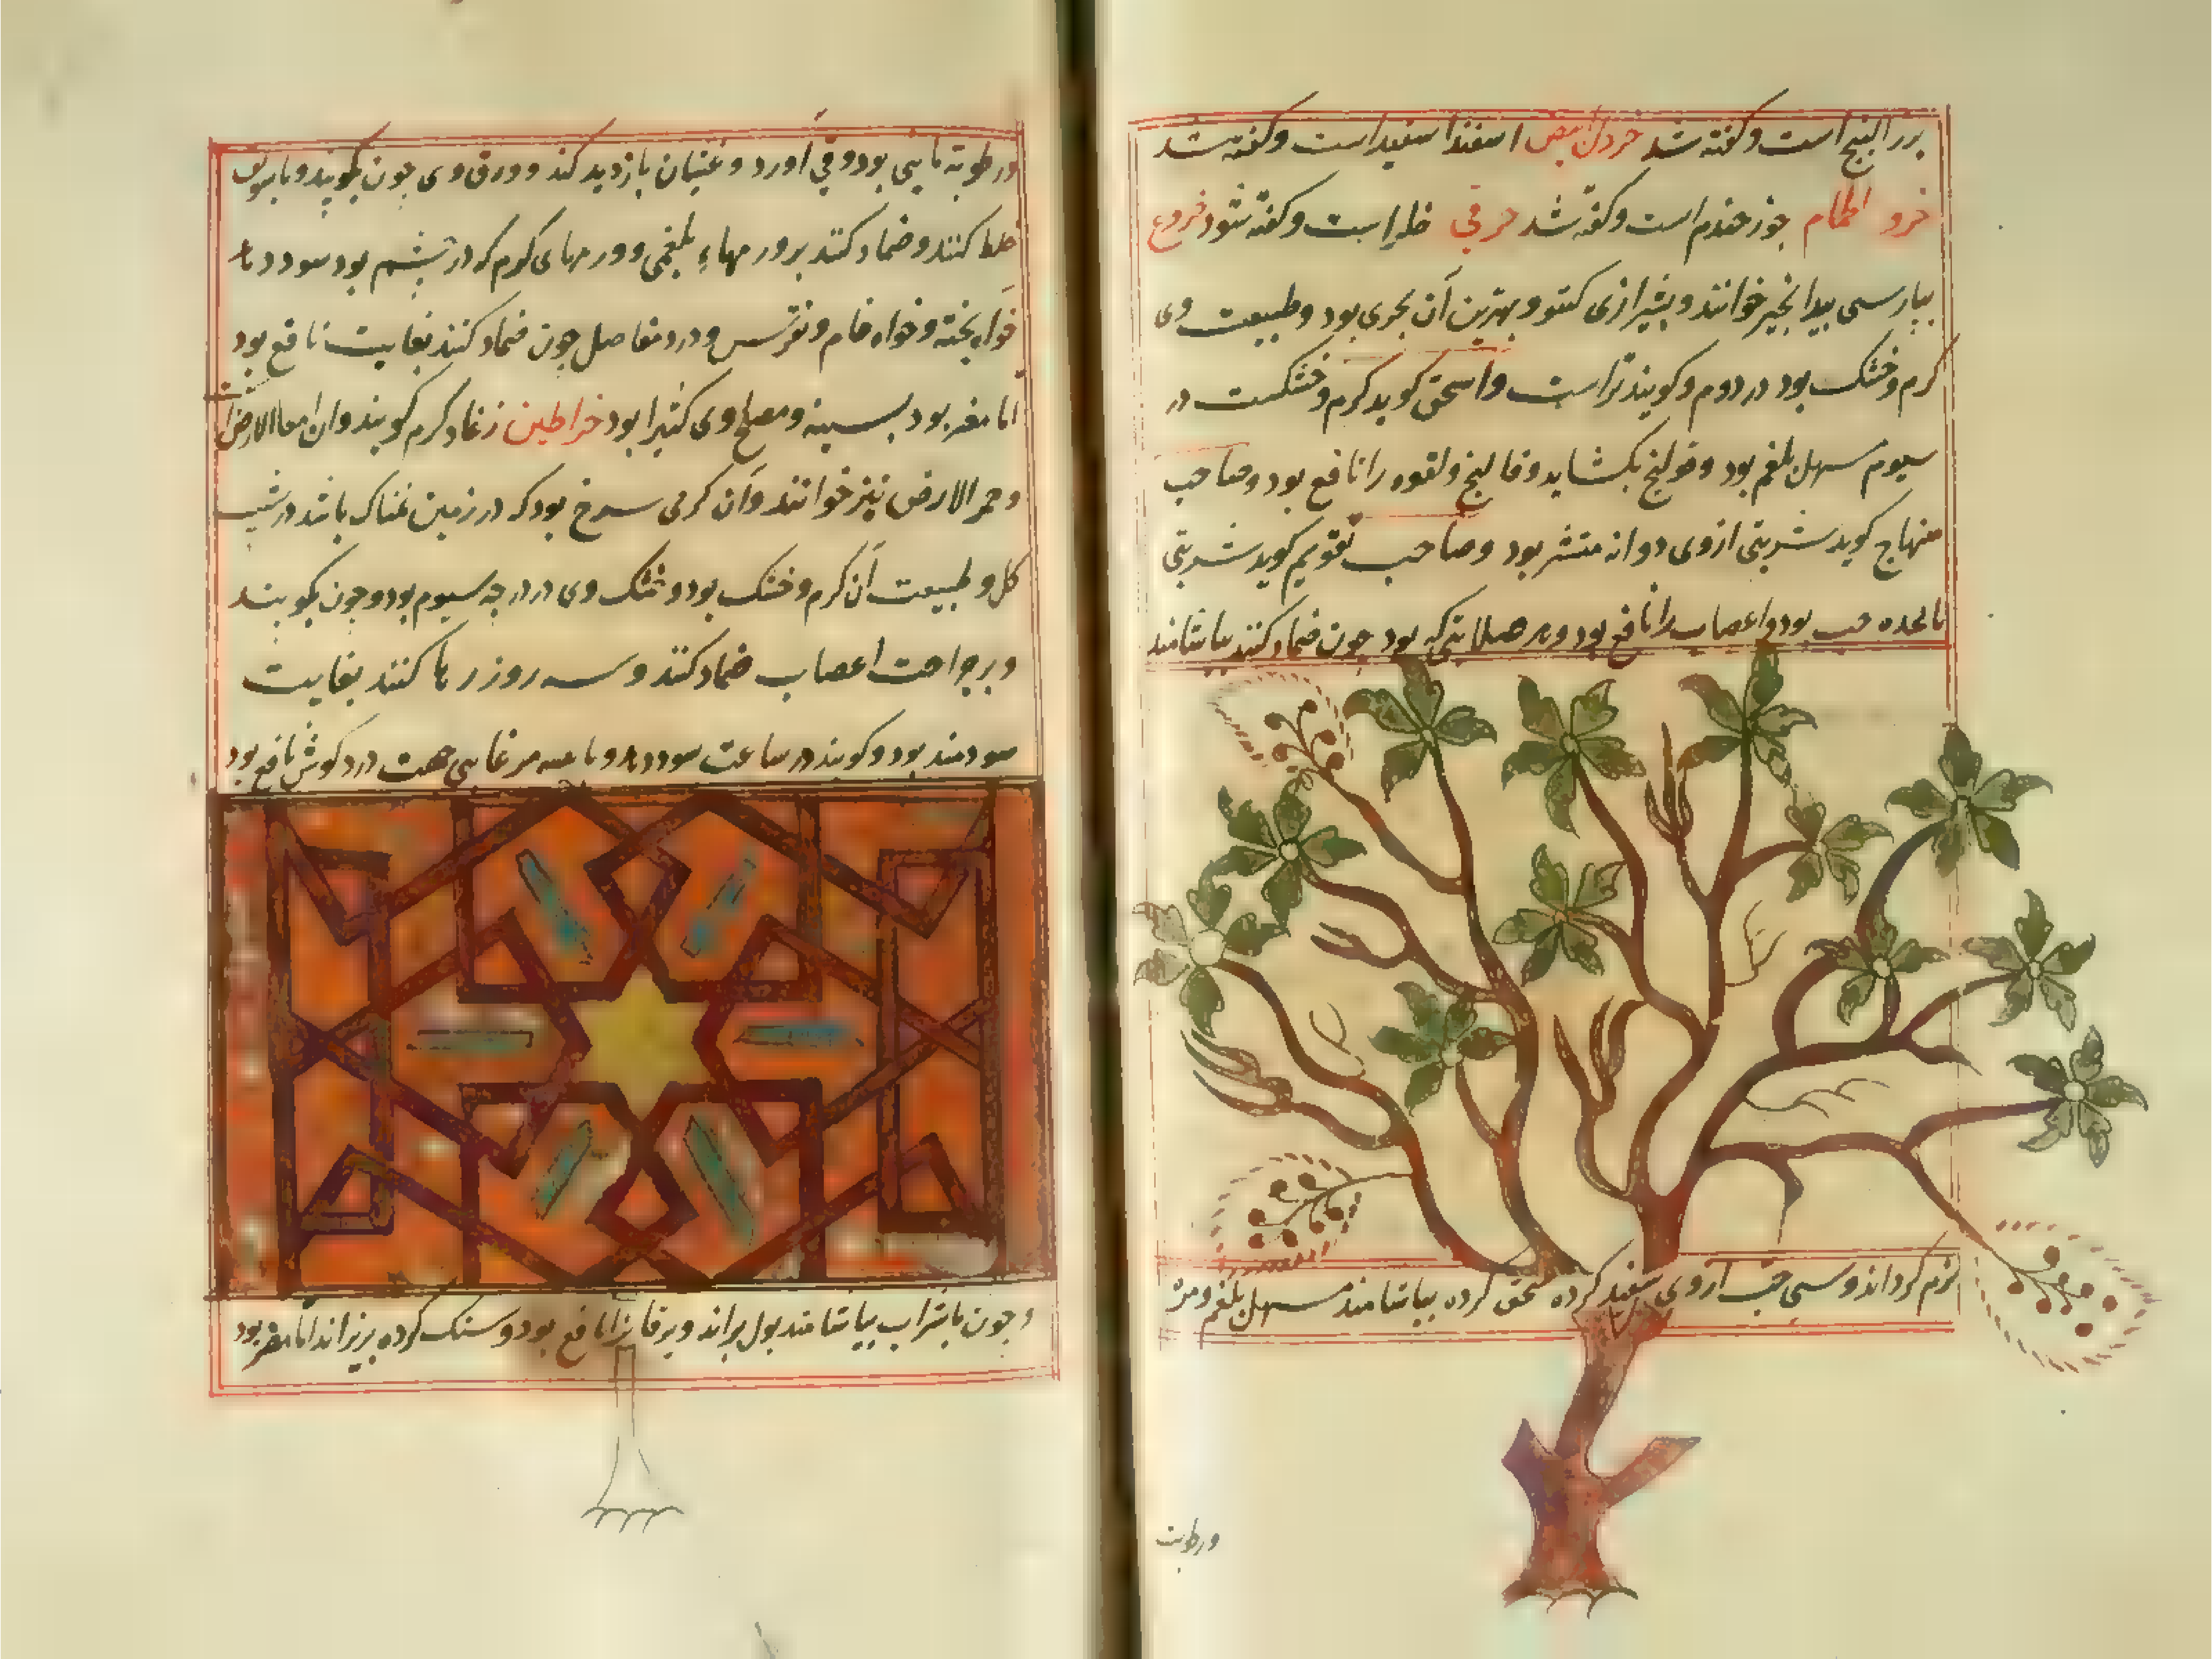 بزر البنج است و کفته شد خردل ابیض اسفندا سفید است و کفته شد
خرو الحمام جوز جندم است و کفته شد حرفی است و کفته شود خروع
بپارسی بیدانجیر خوانند و بشیرازی کنتو و بهترین آن بحری بود و طبیعت وی
کرم و خشک بود در دوم و کویند تراست و اسحق کوید کرم و خشکست در
سیوم مسهل بلغم بود و قولنج بکشاید و فالنج و لقوه را نافع بود و صاحب
منهاج کوید شربتی از وی دوانه منتشر بود و صاحب تقویم کوید شربتی
تا بحده حب بود و اعصاب را نافع بود و هر صلابتی که بود چون ضماد کنند بیاشامند
نرم کرداند و سی حب از وی سفید کرده سحق کرده بیاشامند مسهل بلغم و مره
ورطوبت
ورطوبة مایی بود و قی آورد و غثیان بازدید کند و ورق وی چون بکویند و با سویق
خلط کنند و ضماد کنند بر ورمهاء بلغمی و ورمهای کرم که در چشم بود سود دهد
خواه پخته و خواه خام و نقرس و درد مفاصل چون ضماد کنند بغایت نافع بود
اما مضر بود بسینه و مصلح وی کثیرا بود خراطین کرم کویند و ان امعا الارض
و حمر الارض نیز خوانند و آن کرمی سرخ بود که در زمین نمناک باشد در شیب
کل و طبیعت آن کرم و خشک بود و خشک وی در درجه سیوم بود و چون بکوبند
و بر جراحت اعصاب ضماد کنند و سه روز رها کنند بغایت
سودمند بود و کویند در ساعت سود دهد و با پیه مرغابی جهت درد کوش نافع بود
و چون با شراب بیاشامند بول براند و یرقان را نافع بود و سنک کرده بریزاند اما مضر بود